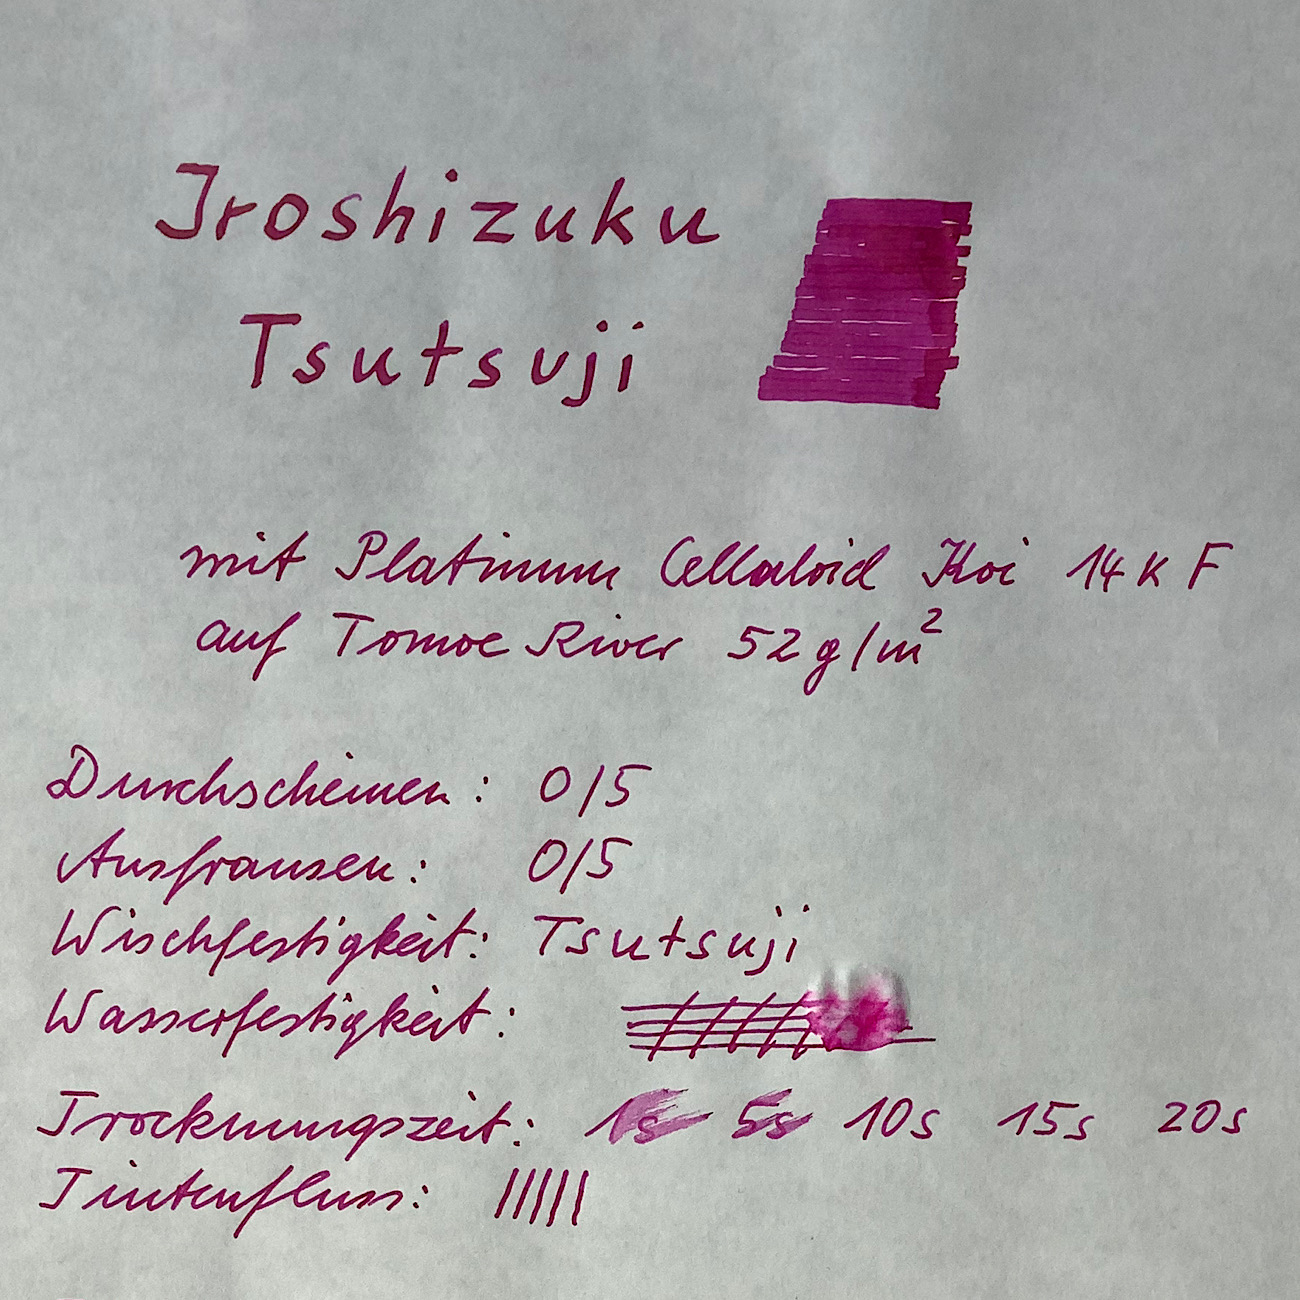 Iroshizuku
Tsutsuji
mit Platinum Celluloid Koi 14K F
auf Tomoe River 52g/m²
Durchscheinen: 0/5
Ausfransen: 0/5
Wischfestigkeit: Tsutsuji
Wasserfestigkeit:
Trocknungszeit: 1s 5s 10s 15s 20s
Tintenfluss: